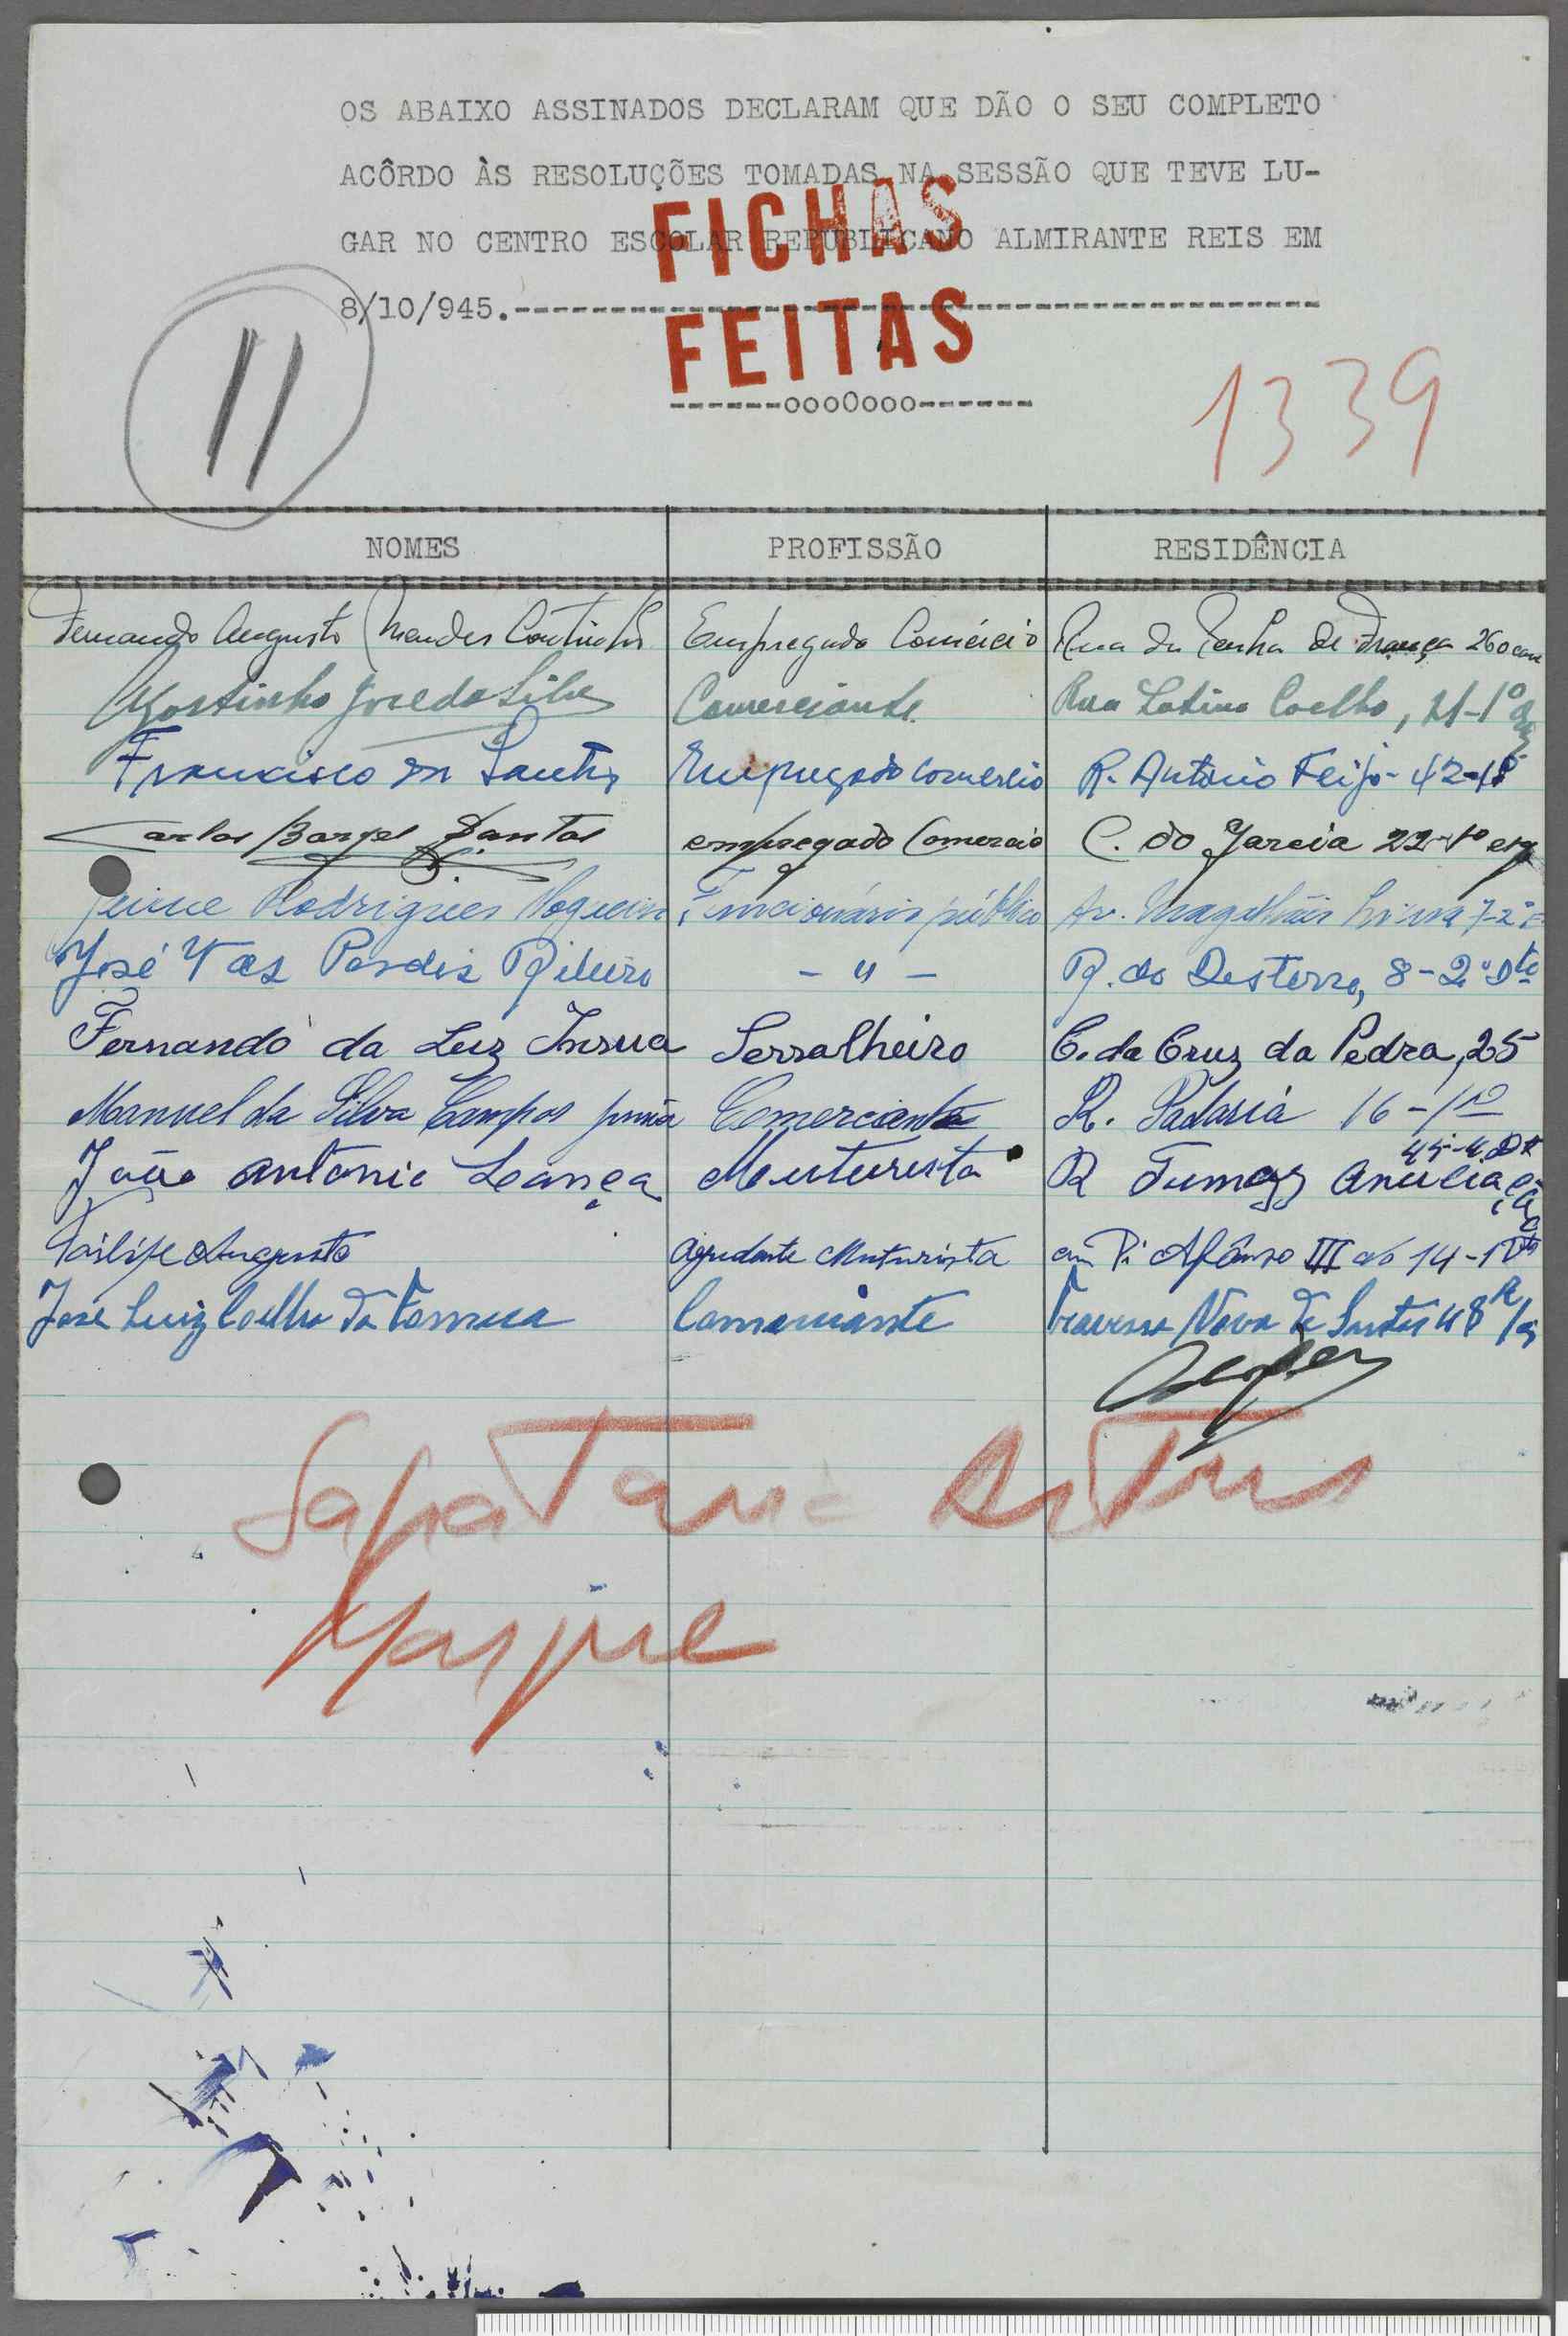 OS ABAIXO ASSINADOS DECLARAM QUE DÃO O SEU COMPLETO
ACÔRDO ÀS RESOLUÇÕES TOMADAS NA SESSÃO QUE TEVE LU-
GAR NO CENTRO ESCOLAR REPUBLICANO ALMIRANTE REIS EM
8/10/945.-
FICHAS
FEITAS
-------ooo0ooo-------
11
1339
NOMES PROFISSÃO RESIDÊNCIA
Fernando Augusto Mendes Coutinho Empregado Comércio Rua da Penha de França 260
Agostinho José da Silva Comerciante. Rua Latino Coelho, 21-1º
Francisco dos Santos Empregado comercio R. António Feijó- 42-
Carlos Santos empregado Comercio C. do Garcia 22-1º esq
Jaime Rodrigues Nogueira Funcionário público Av. Magalhães Lima 7-2º E
José Vaz Pardis Ribeiro - " - R. do Desterro, 8-2º Dto
Fernando da Luz Insua Serralheiro C. da Cruz da Pedra, 25
Manuel da Silva Campos Comerciante R. Padaria 16-1º
João antonio Leança Muturista R Tumaz
45-4 Dt
Filipe Augusto Ajudante Muturista Afônso III no 14-1
José Luiz Coelho da Fonseca Comerciante Travessa Nova de Santos 48
Sapataria